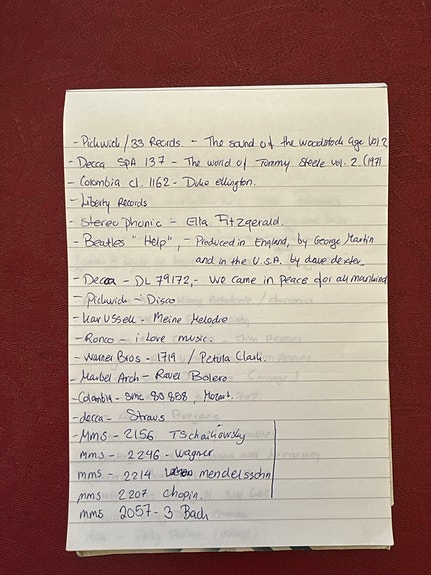 - Pickwick/33 Records. - The sound of the woodstock age Vol 2
- Decca SPA 137 - The world of Tommy Steele vol. 2. (1971
- Colombia cl. 1162 - Duke ellington.
- Liberty Records
- Stereophonic - Ella Fitzgerald.
- Beatles "Help", - Produced in England, by George Martin
and in the U.S.A. by dave dexter.
- Decca - DL 79172, - We came in peace for all mankind
- Pickwick - Disco
- Karussell - Meine Melodie
- Ronco - i love music.
- Warner Bros - 1719 / Petula Clark.
- Marbel Arch - Ravel Bolero
- Colombia - smc 80 858, Mozart.
- decca - Straus
- MMS - 2156 TSchaikowsky
mms - 2246 - Wagner
mms - 2214 mendelssohn
mms 2207 chopin.
mms 2057 - 3 Bach